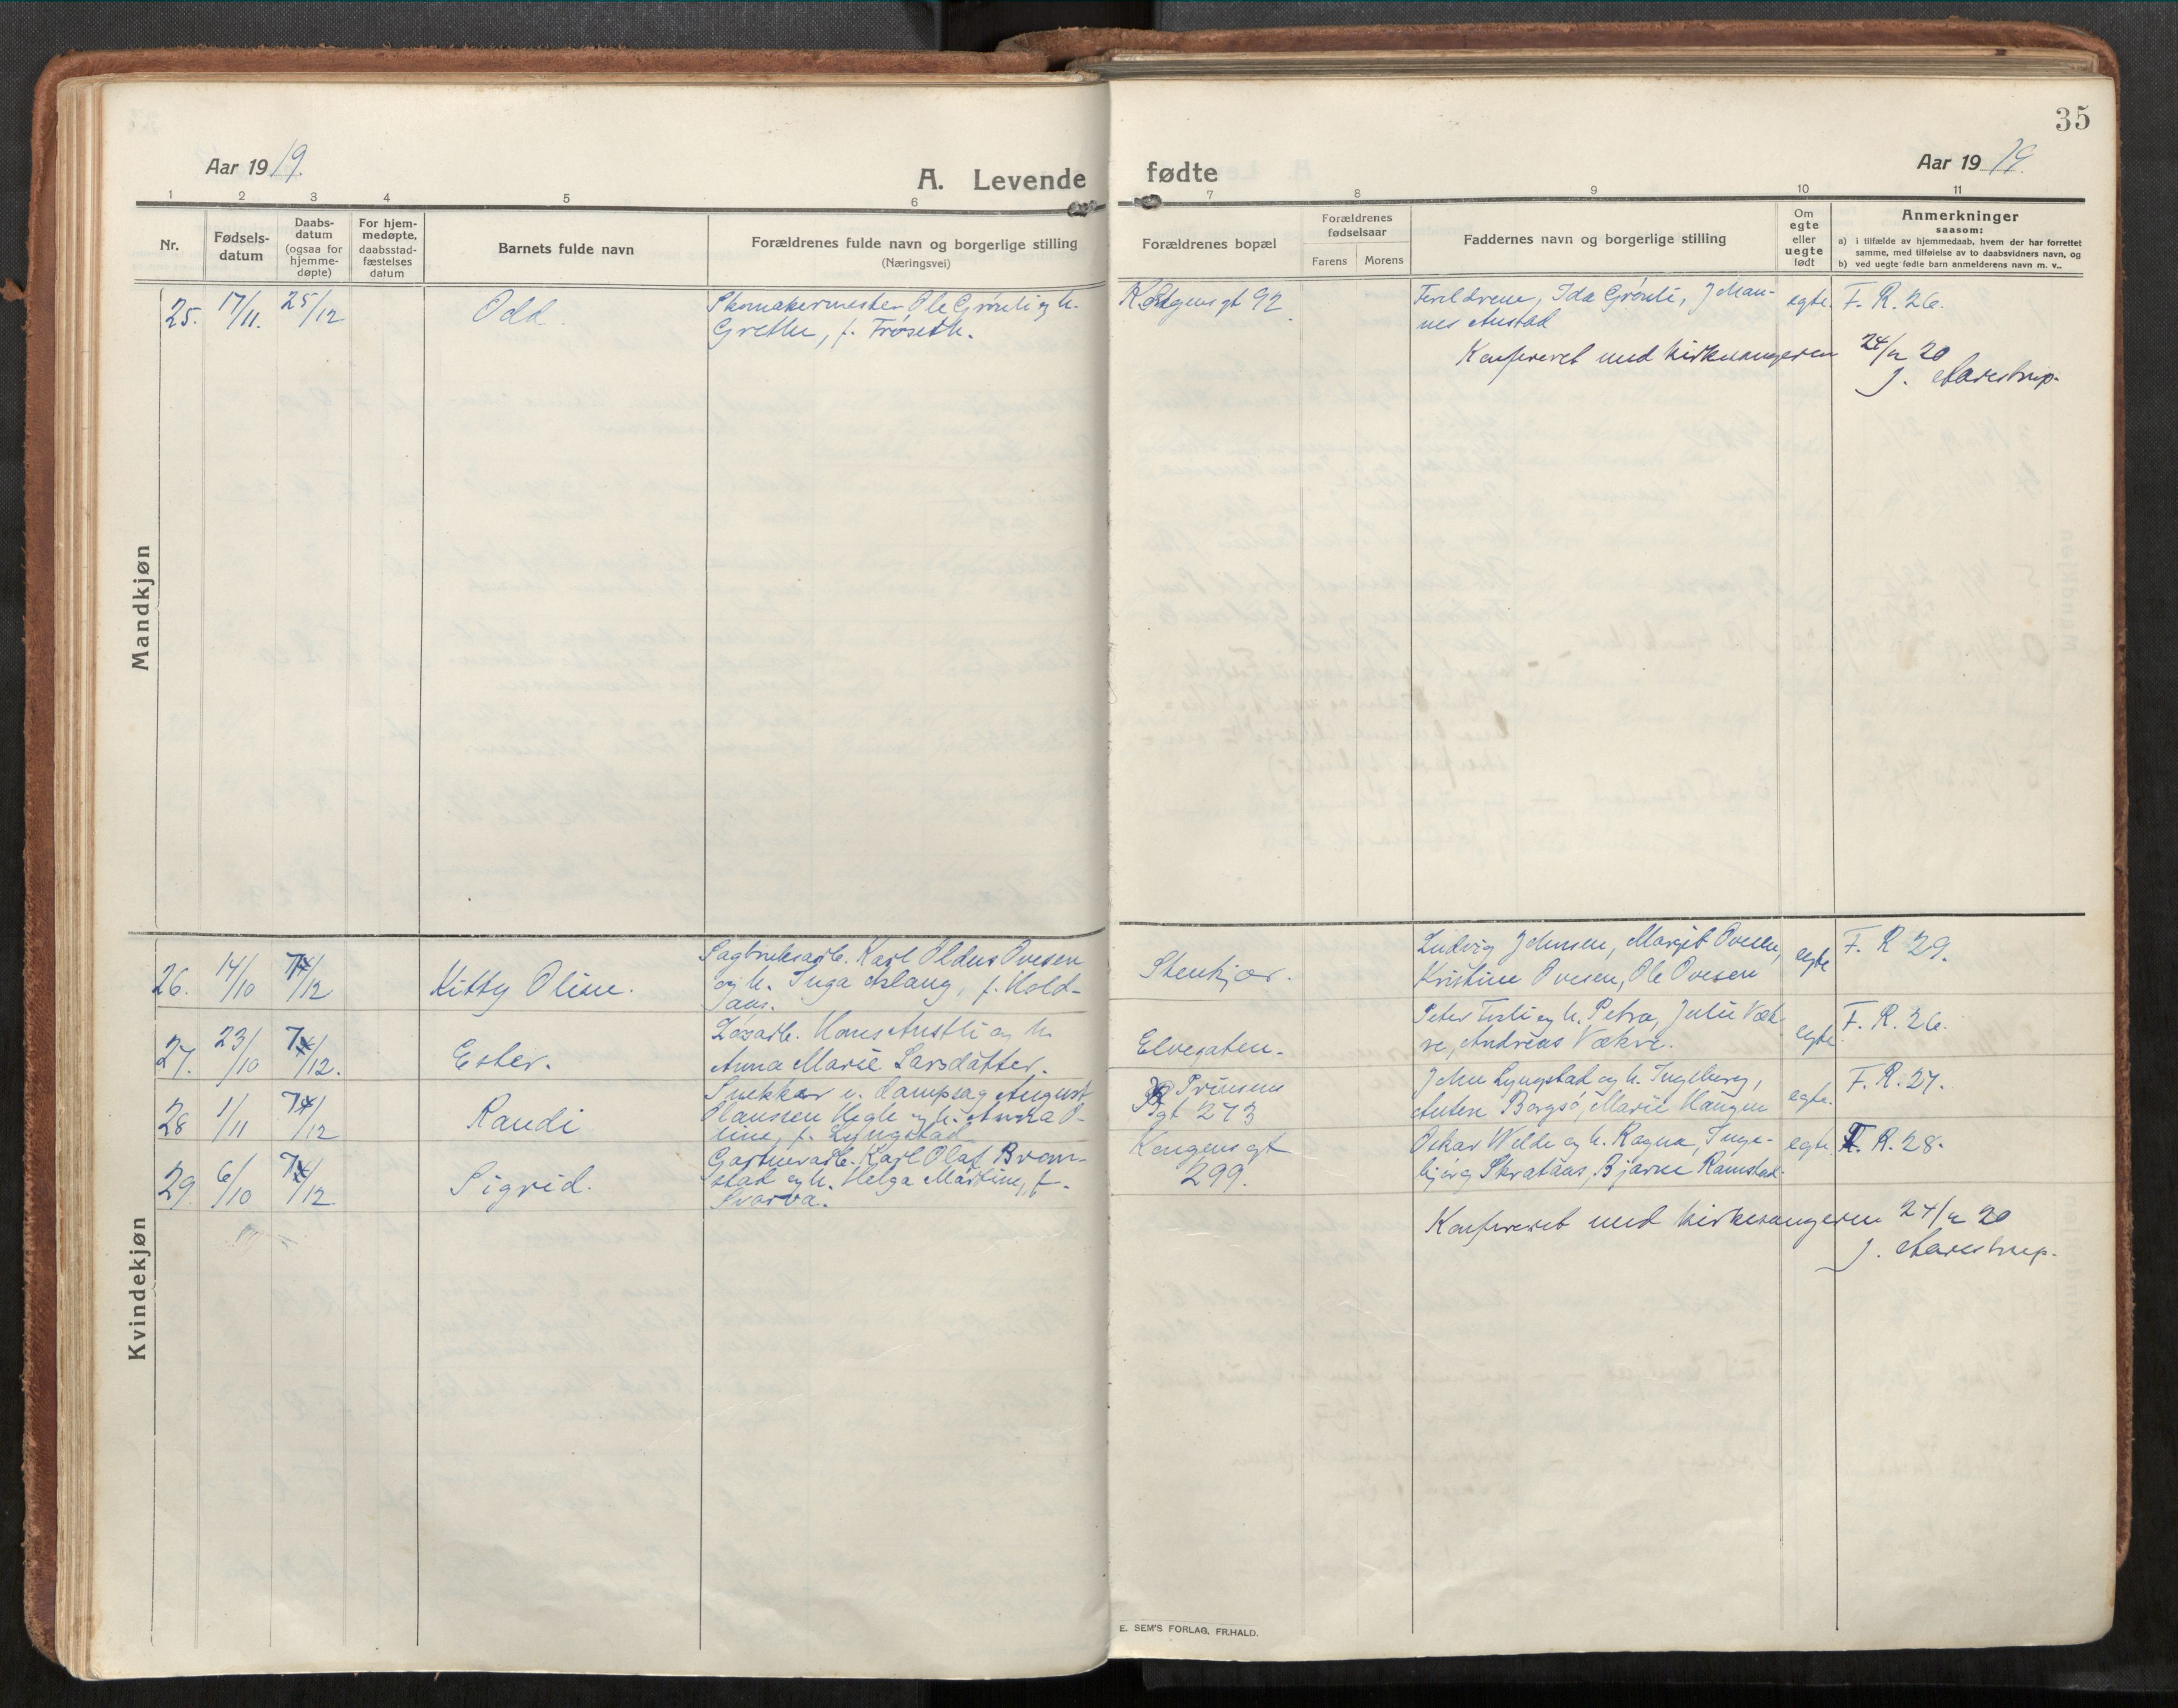 35
Aar 1919.
A. Levende fødte
Aar 1919.
1 2 3 4 5 6 7 8 9 10 11
Nr.
Fødsels-
datum
Daabs-
datum
(ogsaa for
hjemme-
døpte)
For hjem-
medøpte,
daabsstad-
fæstelses
datum
Barnets fulde navn
Forældrenes fulde navn og borgerlige stilling
(Næringsvei)
Forældrenes bopæl
Forældrenes
fødselsaar
Farens Morens
Faddernes navn og borgerlige stilling
Om
egte
eller
uegte
født
Anmerkninger
saasom:
a) i tilfælde av hjemmedaab, hvem der har forrettet
samme, med tilføielse av to daabsvidners navn, og
b) ved uegte fødte barn anmelderens navn m. v..
Mandkjøn
25. 17/11. 25/12 Odd.
Skomakermester Ole Grønli og h.
Grethe, f. Frøseth.
Kongensgt 92.
Forældrene, Ida Grønli, Johan-
nes Austad
egte. F. R. 26.
Konfereret med kirkesangeren 24/2 20
J. Aarestrup.
Kvindekjøn
26. 14/10 7/12 Kitty Oline.
Sagbruksarb. Karl Oldus Ovesen
og h. Inga Aslaug, f. Hold-
aas.
Stenkjær.
Ludvig Johnsen, Margit Ovesen,
Kristine Ovesen, Ole Ovesen
egte F. R 29.
27. 23/10 7/12. Ester.
Løsarb. Hans Austli og h.
Anna Marie Larsdatter.
Elvegaten.
Peter Forli og h. Petra, Julie Væk-
re, Andreas Vækre.
egte F. R. 26.
28 1/11 7/12 Randi
Snekker v. dampsag August
Olaussen Hegle og h. Anna O-
line, f. Lyngstad
Prinsens
gt 273
John Lyngstad og h. Ingeborg,
Anton Borgsø, Marie Haugen
egte. F. R. 27.
29. 6/10 7/12 Sigrid.
Gartnerarb. Karl Olaf Brom-
stad og h. Helga Martine, f.
Svarva.
Kongensgt
299.
Oskar Welde og h. Ragna, Inge-
bjørg Skrataas, Bjarne Ramstad.
egte F. R. 28.
Konfereret med kirkesangeren 24/2 20
J. Aarestrup.
E. SEM'S FORLAG, FR.HALD.